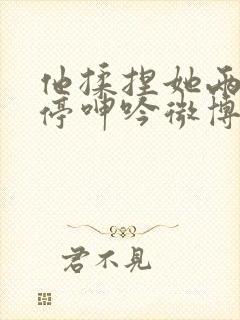 他揉捏她两
停呻吟微博
君不见